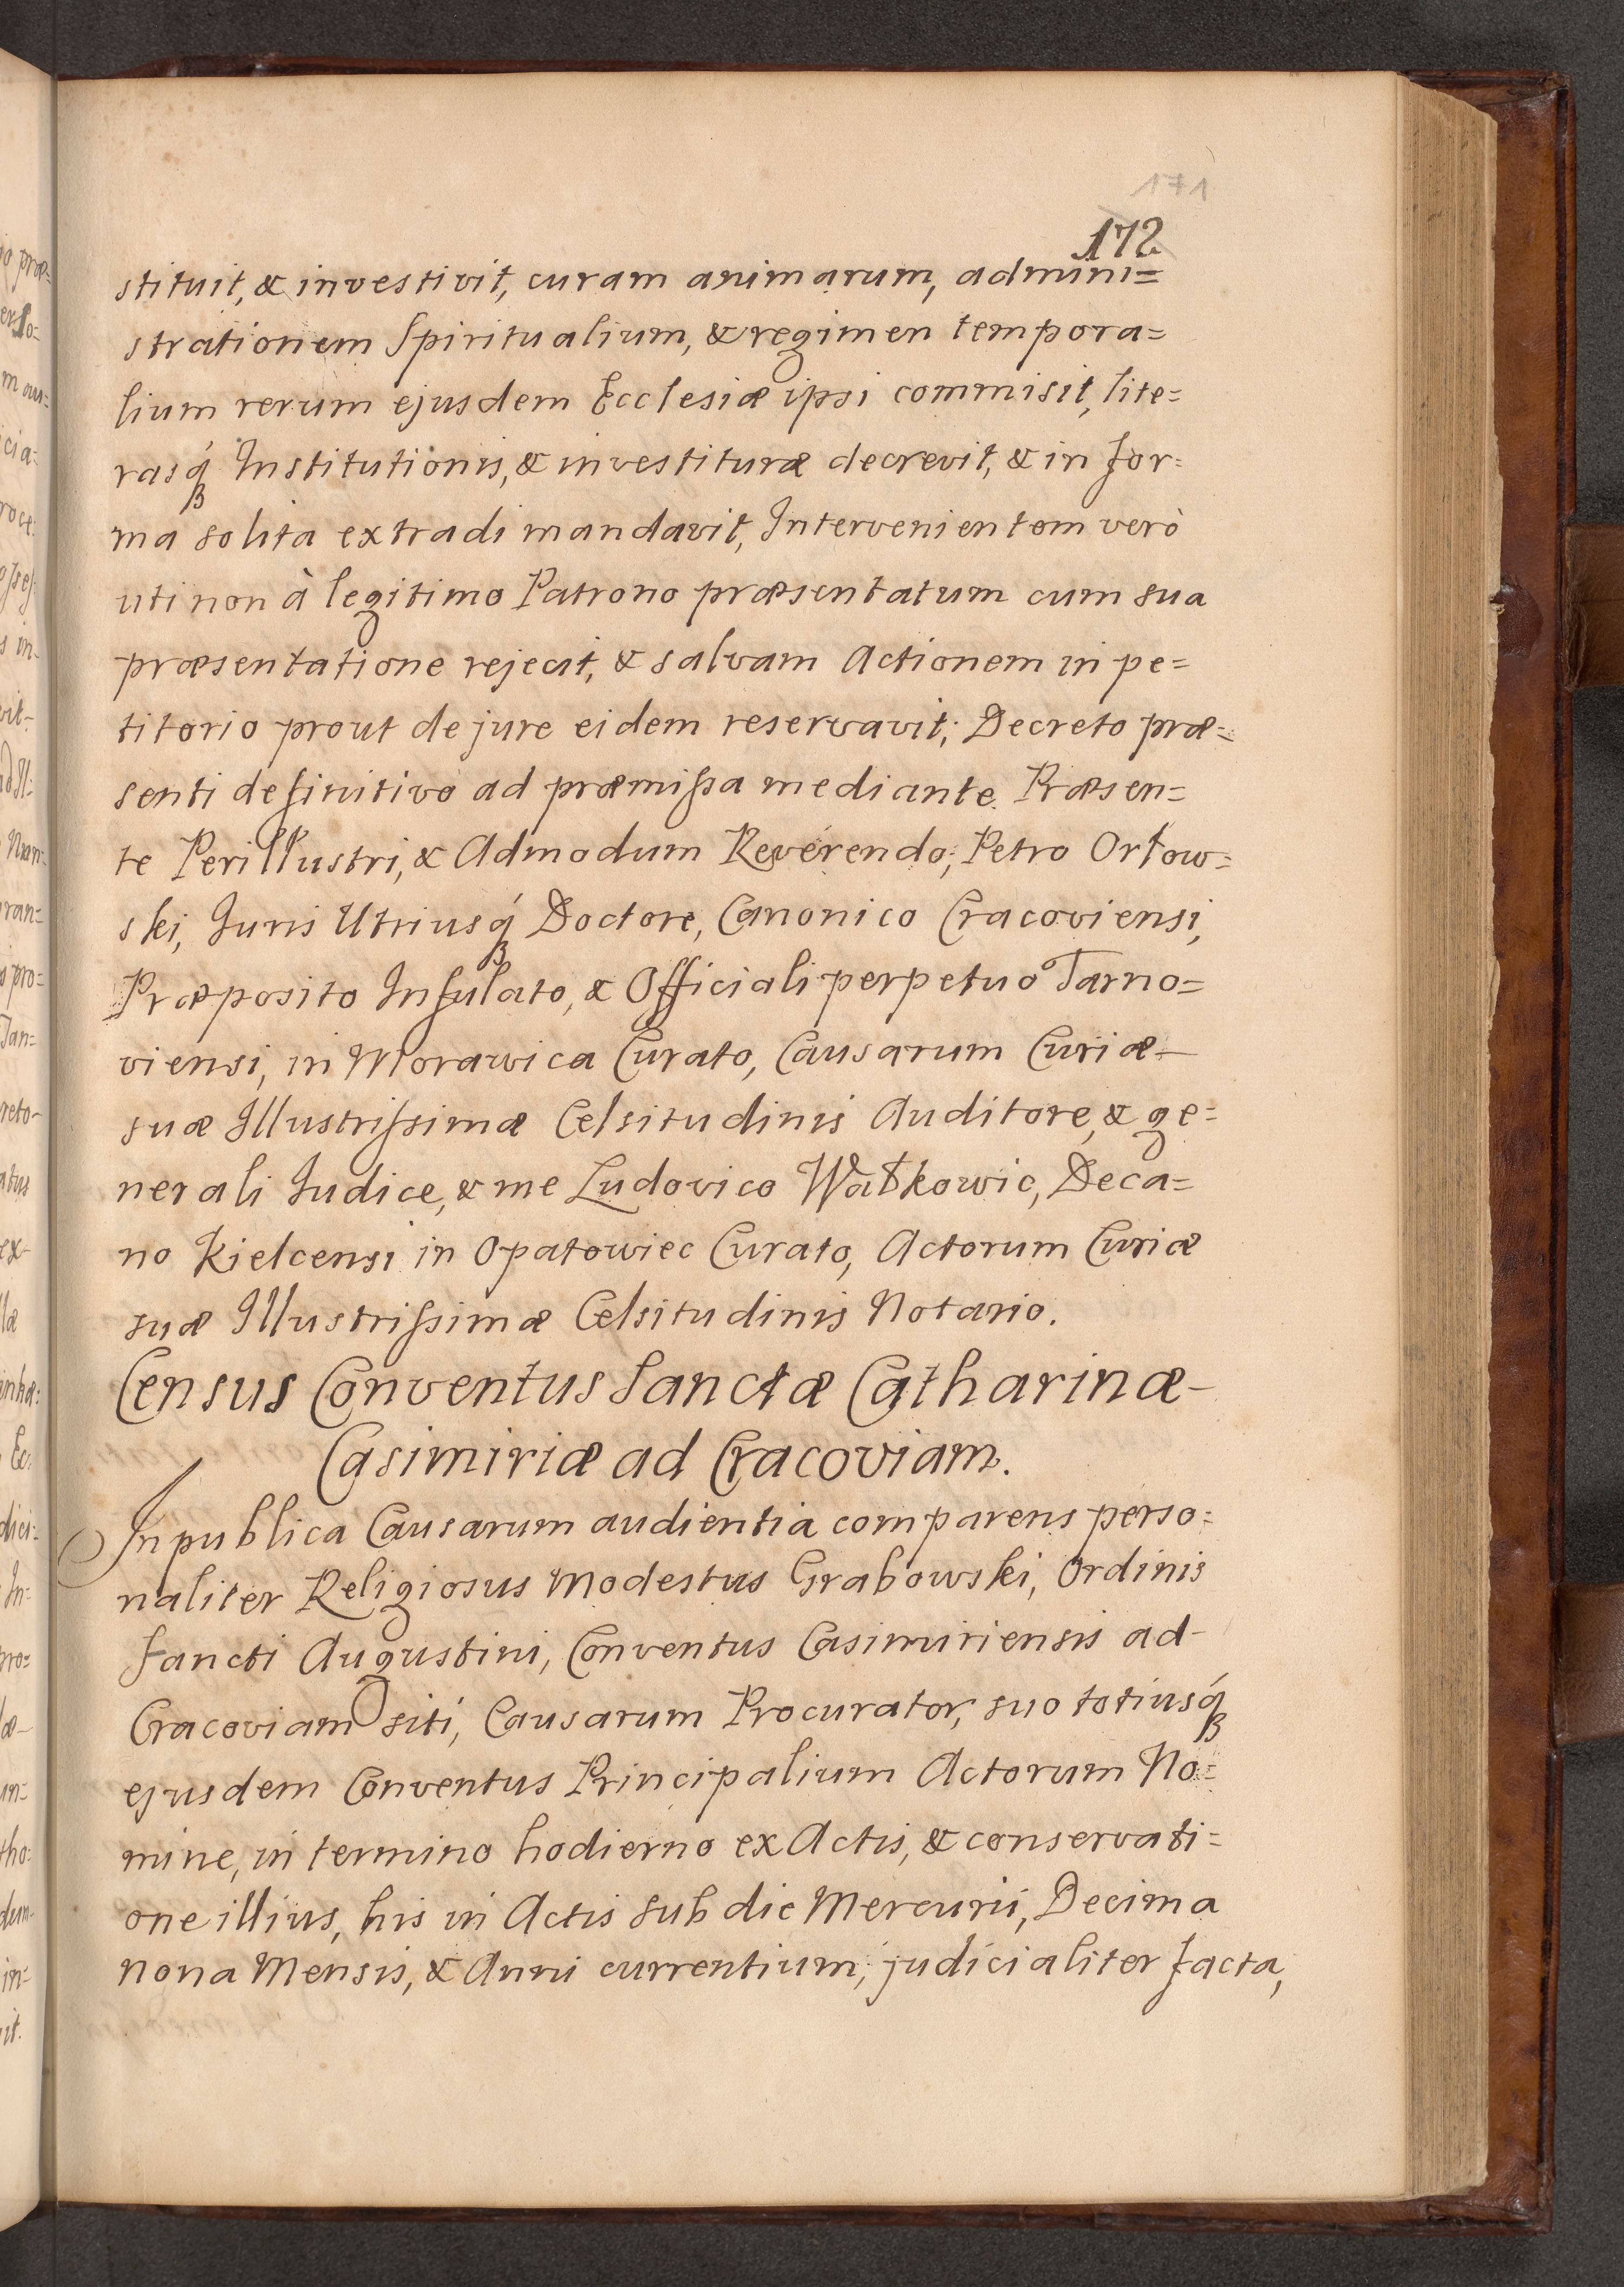 171
172
stituit, & investivit, curam animarum, admini=
strationem Spiritualium, & regimen tempora=
lium rerum ejusdem Ecclesiæ ipsi commisit, lite=
rasq́ꝫ Institutionis, & investituræ decrevit, & in for=
ma solita extradi mandavit, Intervenientem verò
uti non à legitimo Patrono præsentatum cum sua
præsentatione rejecit, & salvam Actionem in pe=
titorio prout de jure eidem reservavit; Decreto præ=
senti definitivo ad præmissa mediante. Præsen=
te Perillustri, & Admodum Reverendo, Petro Orłow=
ski, Juris Utriusq́ꝫ Doctore, Canonico Cracoviensi,
Præposito Infulato, & Officiali perpetuo Tarno=
viensi, in Morawica Curato, Causarum Curiæ-
suæ Illustrissimæ Celsitudinis Auditore, & ge=
nerali Judice, & me Ludovico Wałkowic, Deca=
no Kielcensi in Opatowiec Curato, Actorum Curiæ
suæ Illustrissimæ Celsitudinis Notario.
Census Conventus Sanctæ Catharinæ-
Casimiriæ ad Cracoviam.
In publica Causarum audientia comparens perso=
naliter Religiosus Modestus Grabowski, Ordinis
Sancti Augustini, Conventus Casimiriensis ad-
Cracoviam siti, Causarum Procurator, suo totiusq́ꝫ
ejusdem Conventus Principalium Actorum No=
mine, in termino hodierno ex Actis, & conservati=
one illius, his in Actis sub die Mercurii, Decima
nona Mensis, & Anni currentium, judicialiter facta,